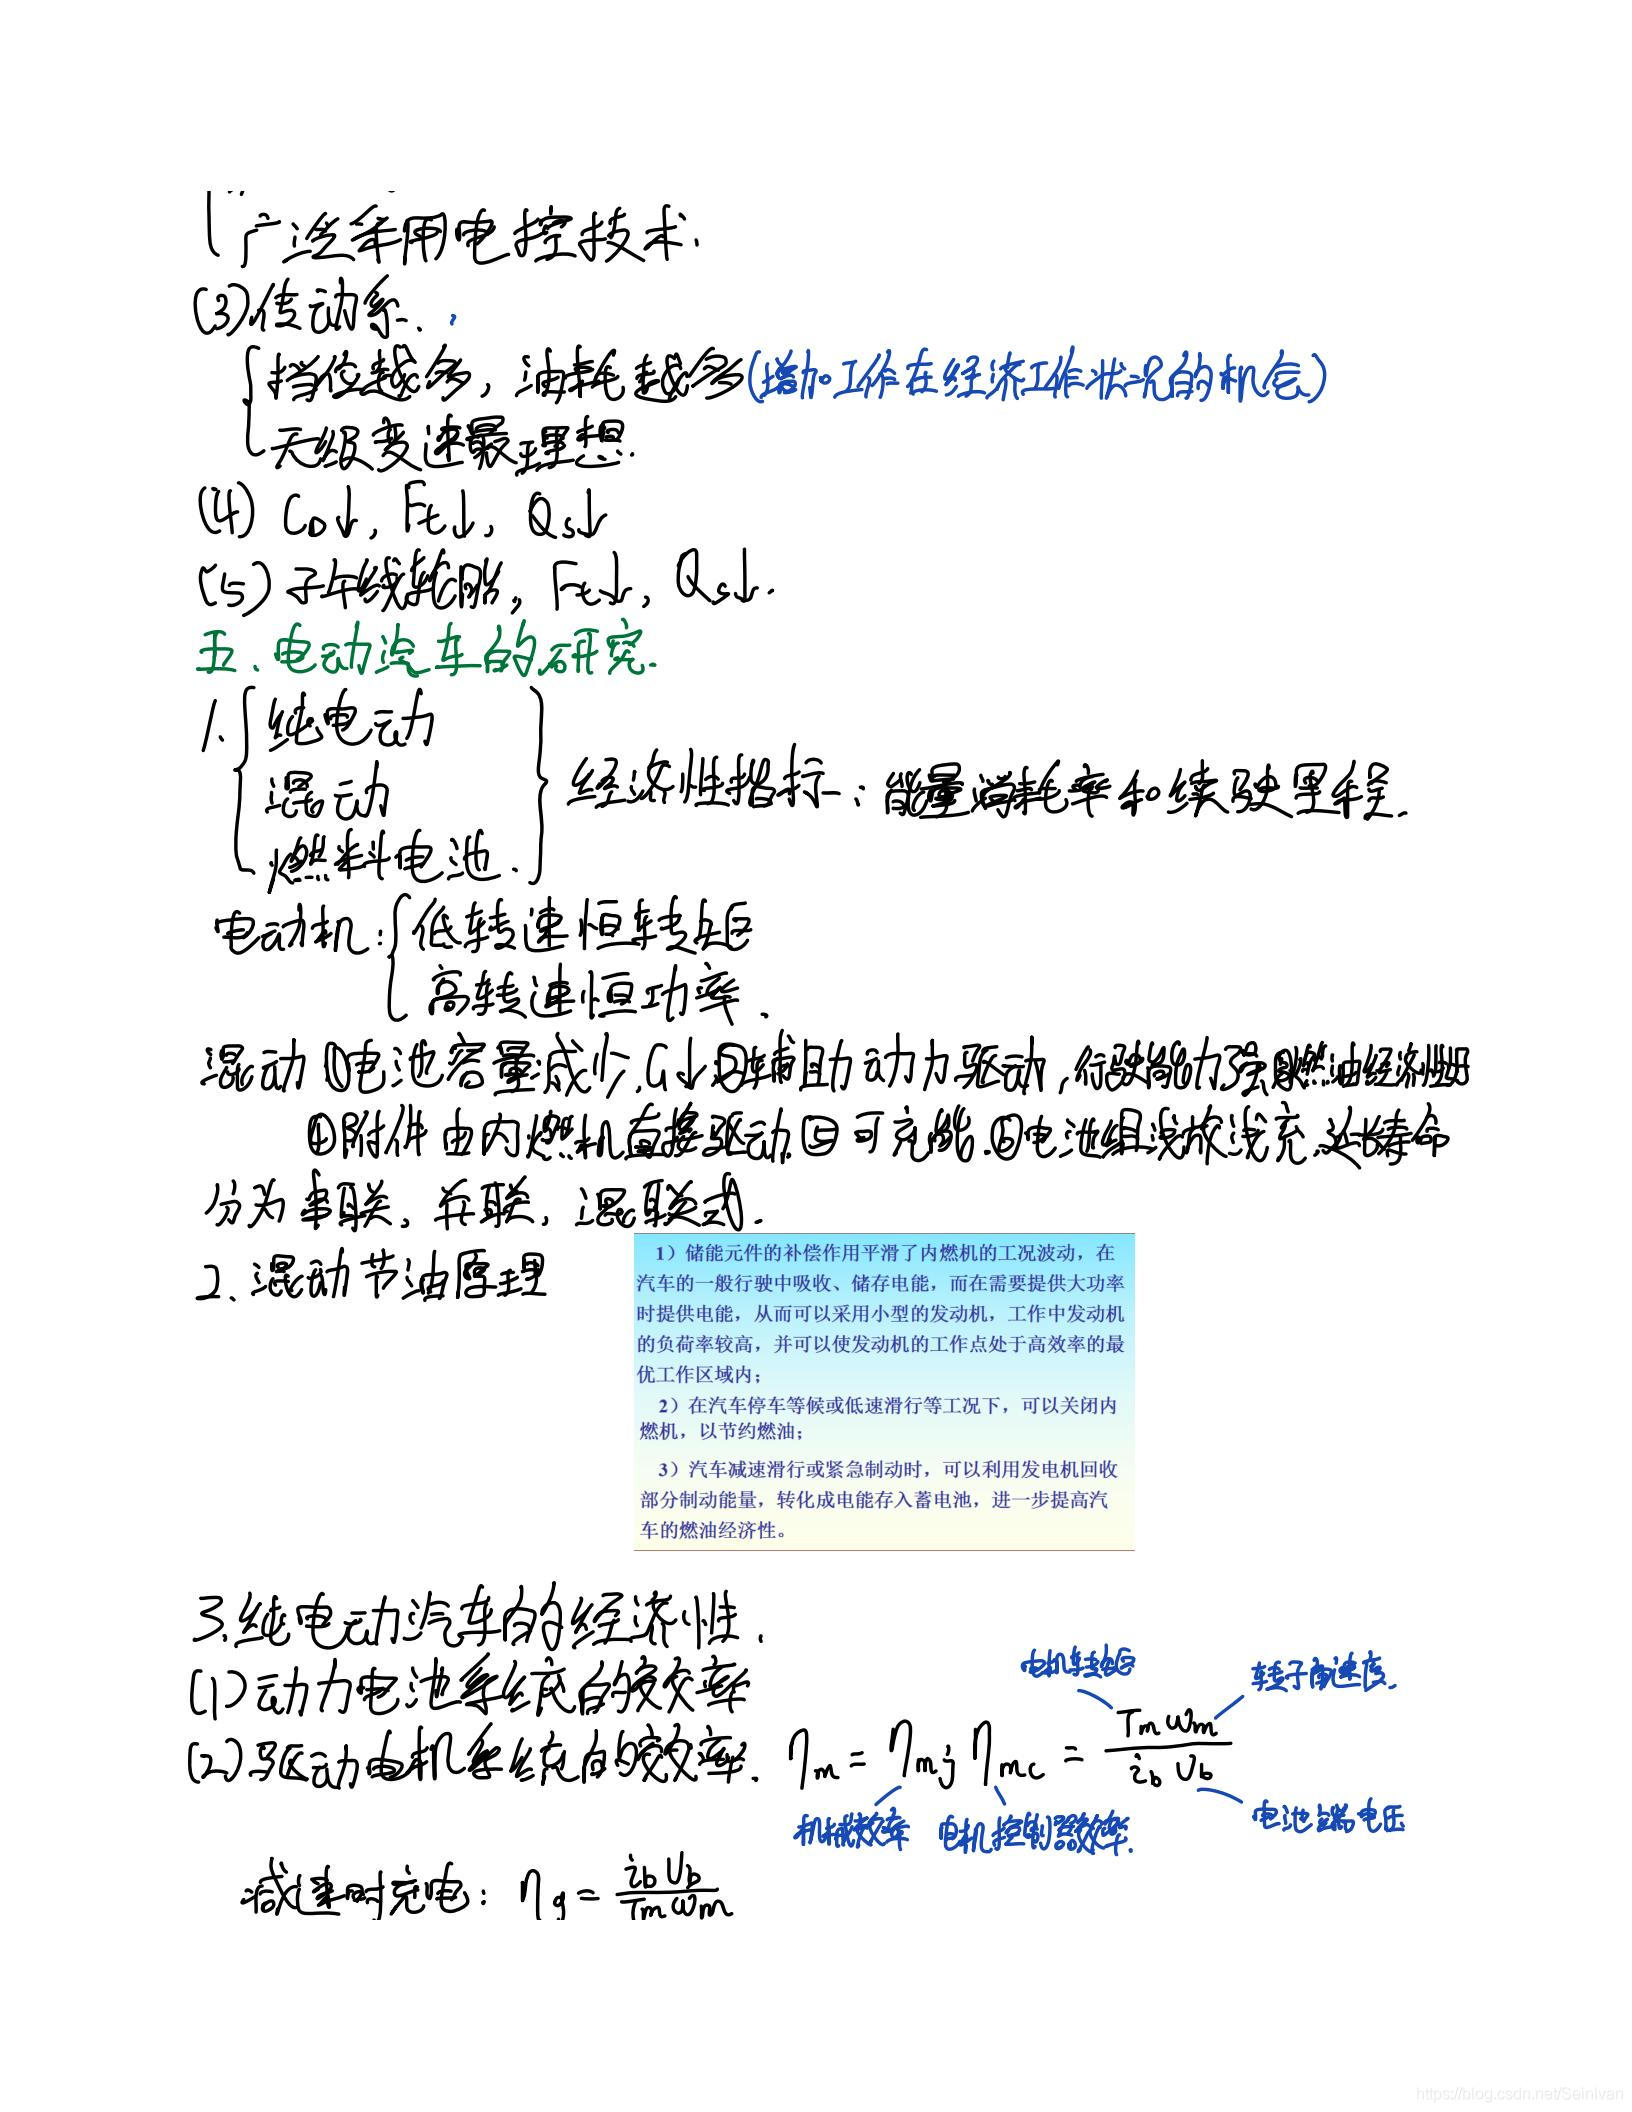 广泛采用电控技术.
(3)传动系.
挡位越多，油耗越多(增加工作在经济工作状况的机会)
无级变速最理想.
(4) C_D↓, F_t↓, Q_s↓
(5) 子午线轮胎, F_t↓, Q_s↓.
五、电动汽车的研究.
1. 纯电动
混动
燃料电池.
经济性指标：能量消耗率和续驶里程.
电动机：低转速恒转矩
高转速恒功率.
混动 ①电池容量减少, G↓ 辅助动力驱动, 行驶能力强 燃油经济性好
④附件由内燃机直接驱动 ⑤可充能. ⑥电池组浅放浅充, 延长寿命
分为串联, 并联, 混联式.
2、混动节油原理
1）储能元件的补偿作用平滑了内燃机的工况波动，在
汽车的一般行驶中吸收、储存电能，而在需要提供大功率
时提供电能，从而可以采用小型的发动机，工作中发动机
的负荷率较高，并可以使发动机的工作点处于高效率的最
优工作区域内；
2）在汽车停车等候或低速滑行等工况下，可以关闭内
燃机，以节约燃油；
3）汽车减速滑行或紧急制动时，可以利用发电机回收
部分制动能量，转化成电能存入蓄电池，进一步提高汽
车的燃油经济性。
3.纯电动汽车的经济性.
电机转矩 转子角速度.
(1)动力电池系统的效率
(2)驱动电机系统的效率. η_m = η_mj η_mc = T_m ω_m / i_b U_b
机械效率 电机控制器效率. 电池端电压
减速时充电： η_g = i_b U_b / T_m ω_m
https://blog.csdn.net/SeinIvan